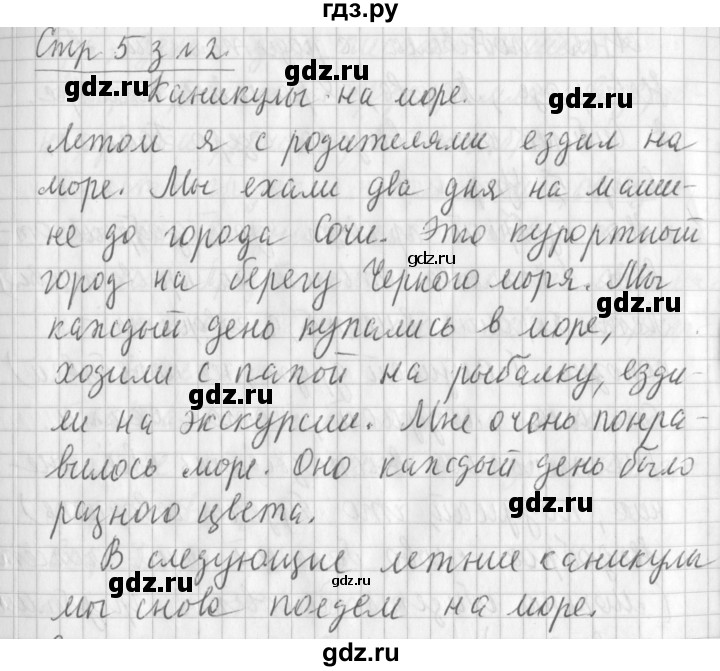 гдз.ру
Стр 5 з № 2.
gdz.ru
gdz.ru
Каникулы на море.
Летом я с родителями ездил на
море. Мы ехали два дня на маши-
не до города Сочи. Это курортный
gdz.ru
город на берегу Черного моря. Мы
gdz.ru
каждый день купались в море,
ходили с папой на рыбалку, езди-
gdz.ru
ли на экскурсии. Мне очень понра-
вилось море. Оно каждый день было
gdz.ru
разного цвета.
В следующие летние каникулы
gdz.ru
gdz.ru
мы снова поедем на море.
gdz.ru